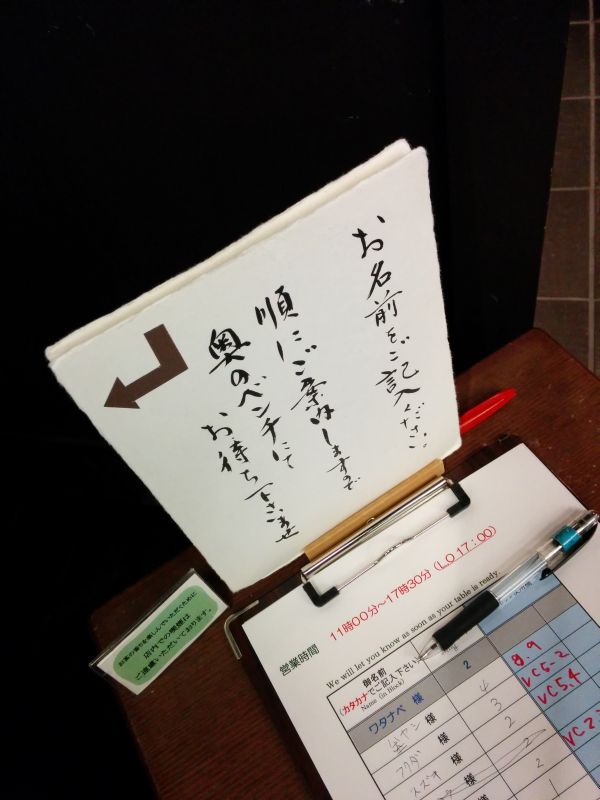 お名前をご記入ください
順にご案内しますので
奥のベンチにて
お待ち下さいませ
お茶の香りを楽しんでいただくために
店内での喫煙は
ご遠慮いただいております。
営業時間
11時00分~17時30分(L.O 17:00)
We will let you know as soon as your table is ready.
御名前
(カタカナでご記入下さい)
Name (in Block)
ワタナベ 様
2
様
4
フクダ 様
3
スズオ 様
2
様
2
2
1
8.9
VC5-2
VC5.4
VC2